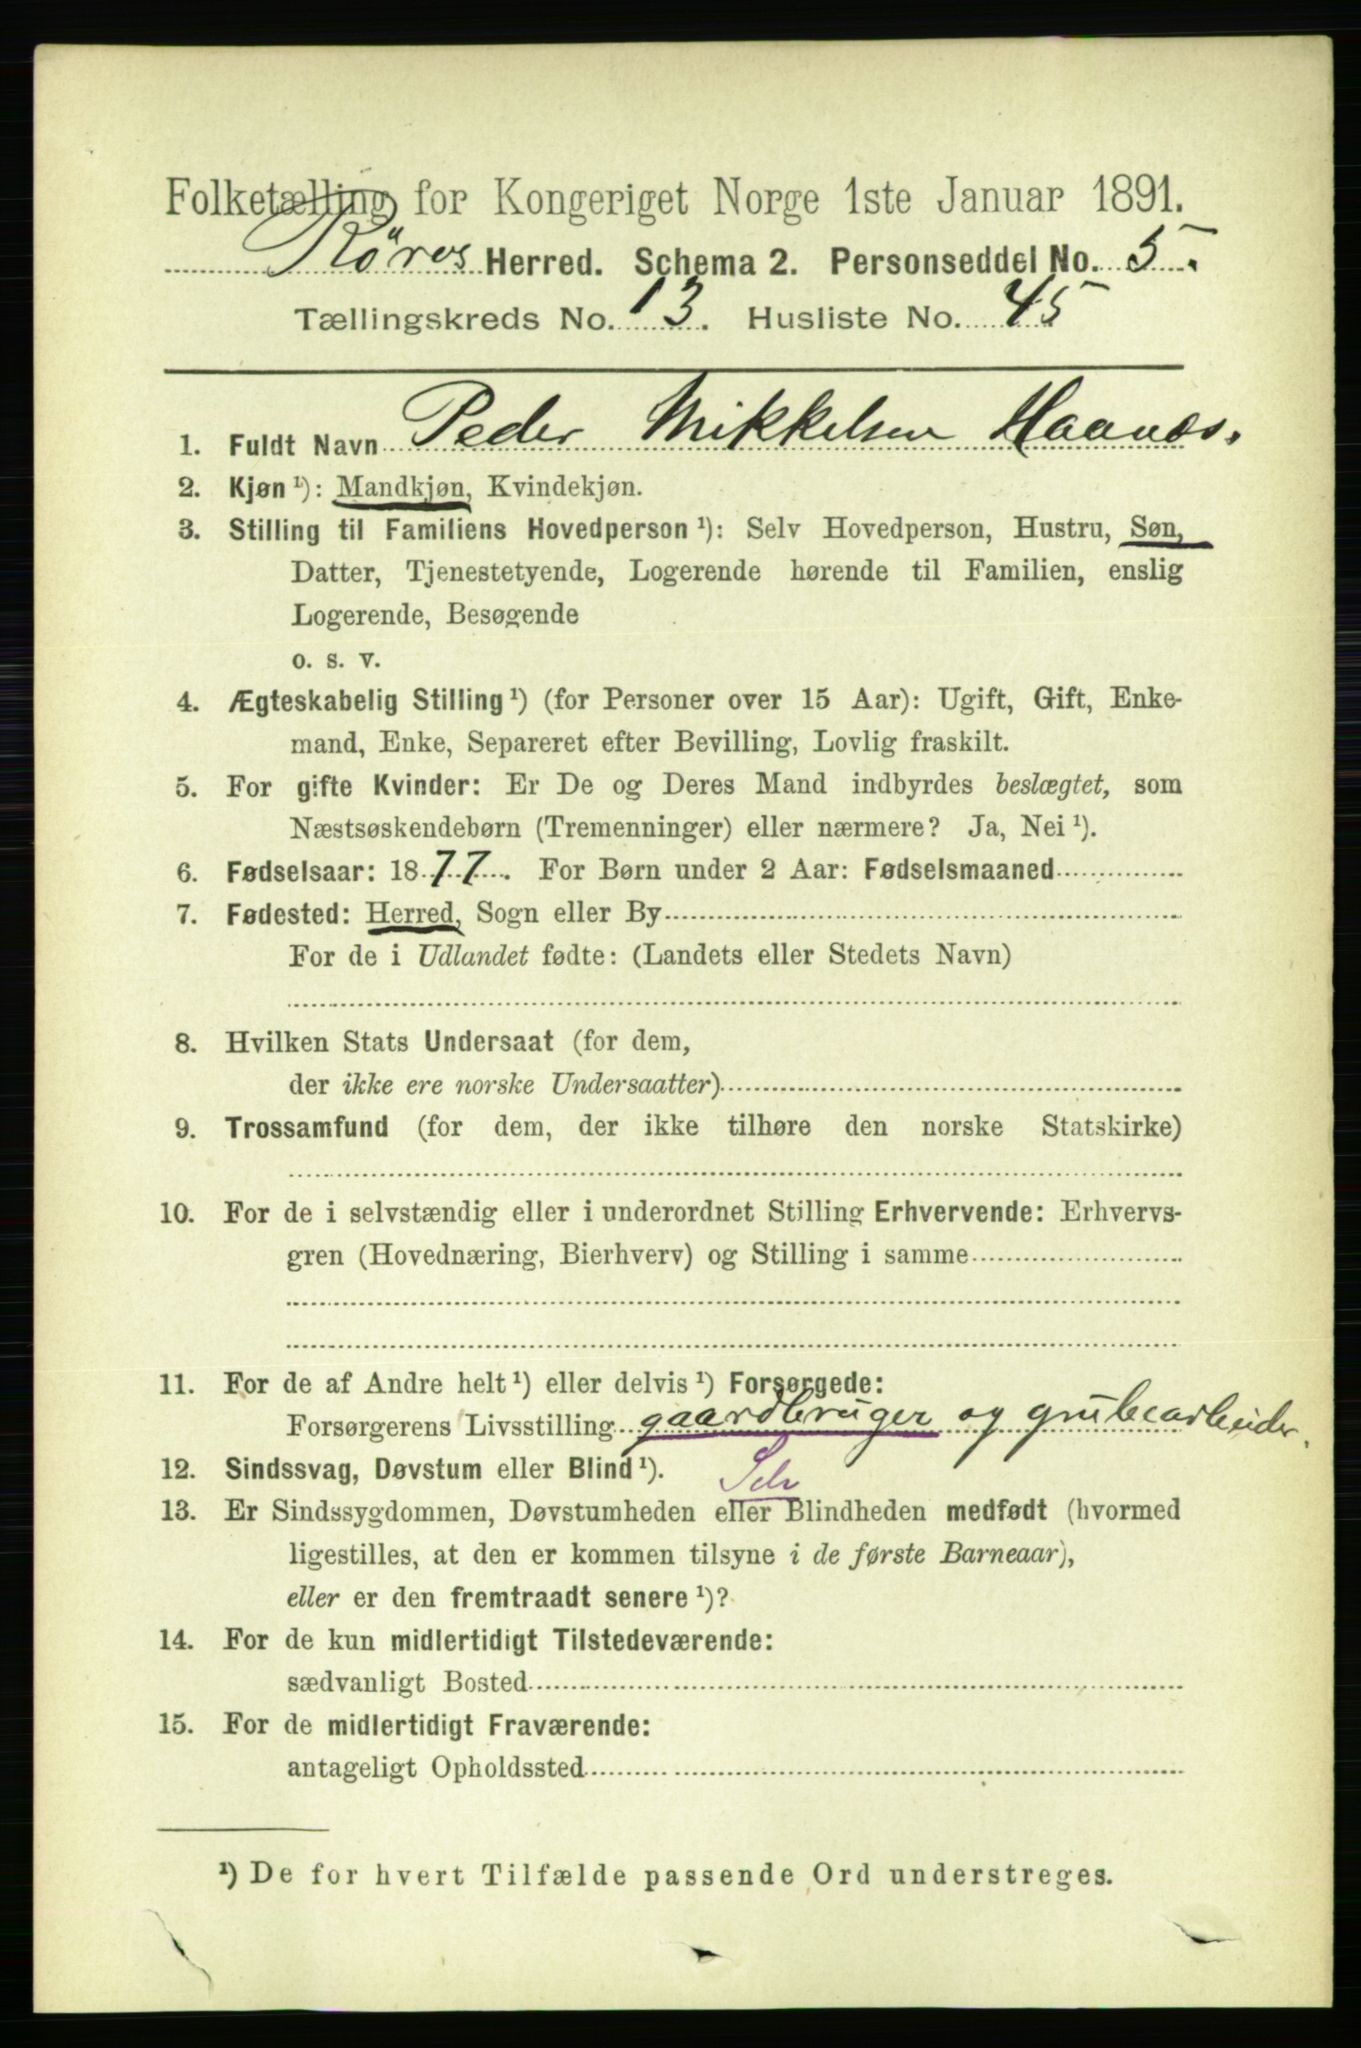 Folketælling for Kongeriget Norge 1ste Januar 1891.
Röros Herred. Schema 2. Personseddel No. 5.
Tællingskreds No. 13. Husliste No. 45
1. Fuldt Navn Peder Mikkelsen Haanæs.
2. Kjøn ¹): Mandkjøn, Kvindekjøn.
3. Stilling til Familiens Hovedperson ¹): Selv Hovedperson, Hustru, Søn,
Datter, Tjenestetyende, Logerende hørende til Familien, enslig
Logerende, Besøgende
o. s. v.
4. Ægteskabelig Stilling ¹) (for Personer over 15 Aar): Ugift, Gift, Enke-
mand, Enke, Separeret efter Bevilling, Lovlig fraskilt.
5. For gifte Kvinder: Er De og Deres Mand indbyrdes beslægtet, som
Næstsøskendebørn (Tremenninger) eller nærmere? Ja, Nei ¹).
6. Fødselsaar: 1877. For Børn under 2 Aar: Fødselsmaaned
7. Fødested: Herred, Sogn eller By
For de i Udlandet fødte: (Landets eller Stedets Navn)
8. Hvilken Stats Undersaat (for dem,
der ikke ere norske Undersaatter)
9. Trossamfund (for dem, der ikke tilhøre den norske Statskirke)
10. For de i selvstændig eller i underordnet Stilling Erhvervende: Erhvervs-
gren (Hovednæring, Bierhverv) og Stilling i samme
11. For de af Andre helt ¹) eller delvis ¹) Forsørgede:
Forsørgerens Livsstilling gaardbruger og grubearbeider.
12. Sindssvag, Døvstum eller Blind ¹). Selv
13. Er Sindssygdommen, Døvstumheden eller Blindheden medfødt (hvormed
ligestilles, at den er kommen tilsyne i de første Barneaar),
eller er den fremtraadt senere ¹)?
14. For de kun midlertidigt Tilstedeværende:
sædvanligt Bosted
15. For de midlertidigt Fraværende:
antageligt Opholdssted
¹) De for hvert Tilfælde passende Ord understreges.